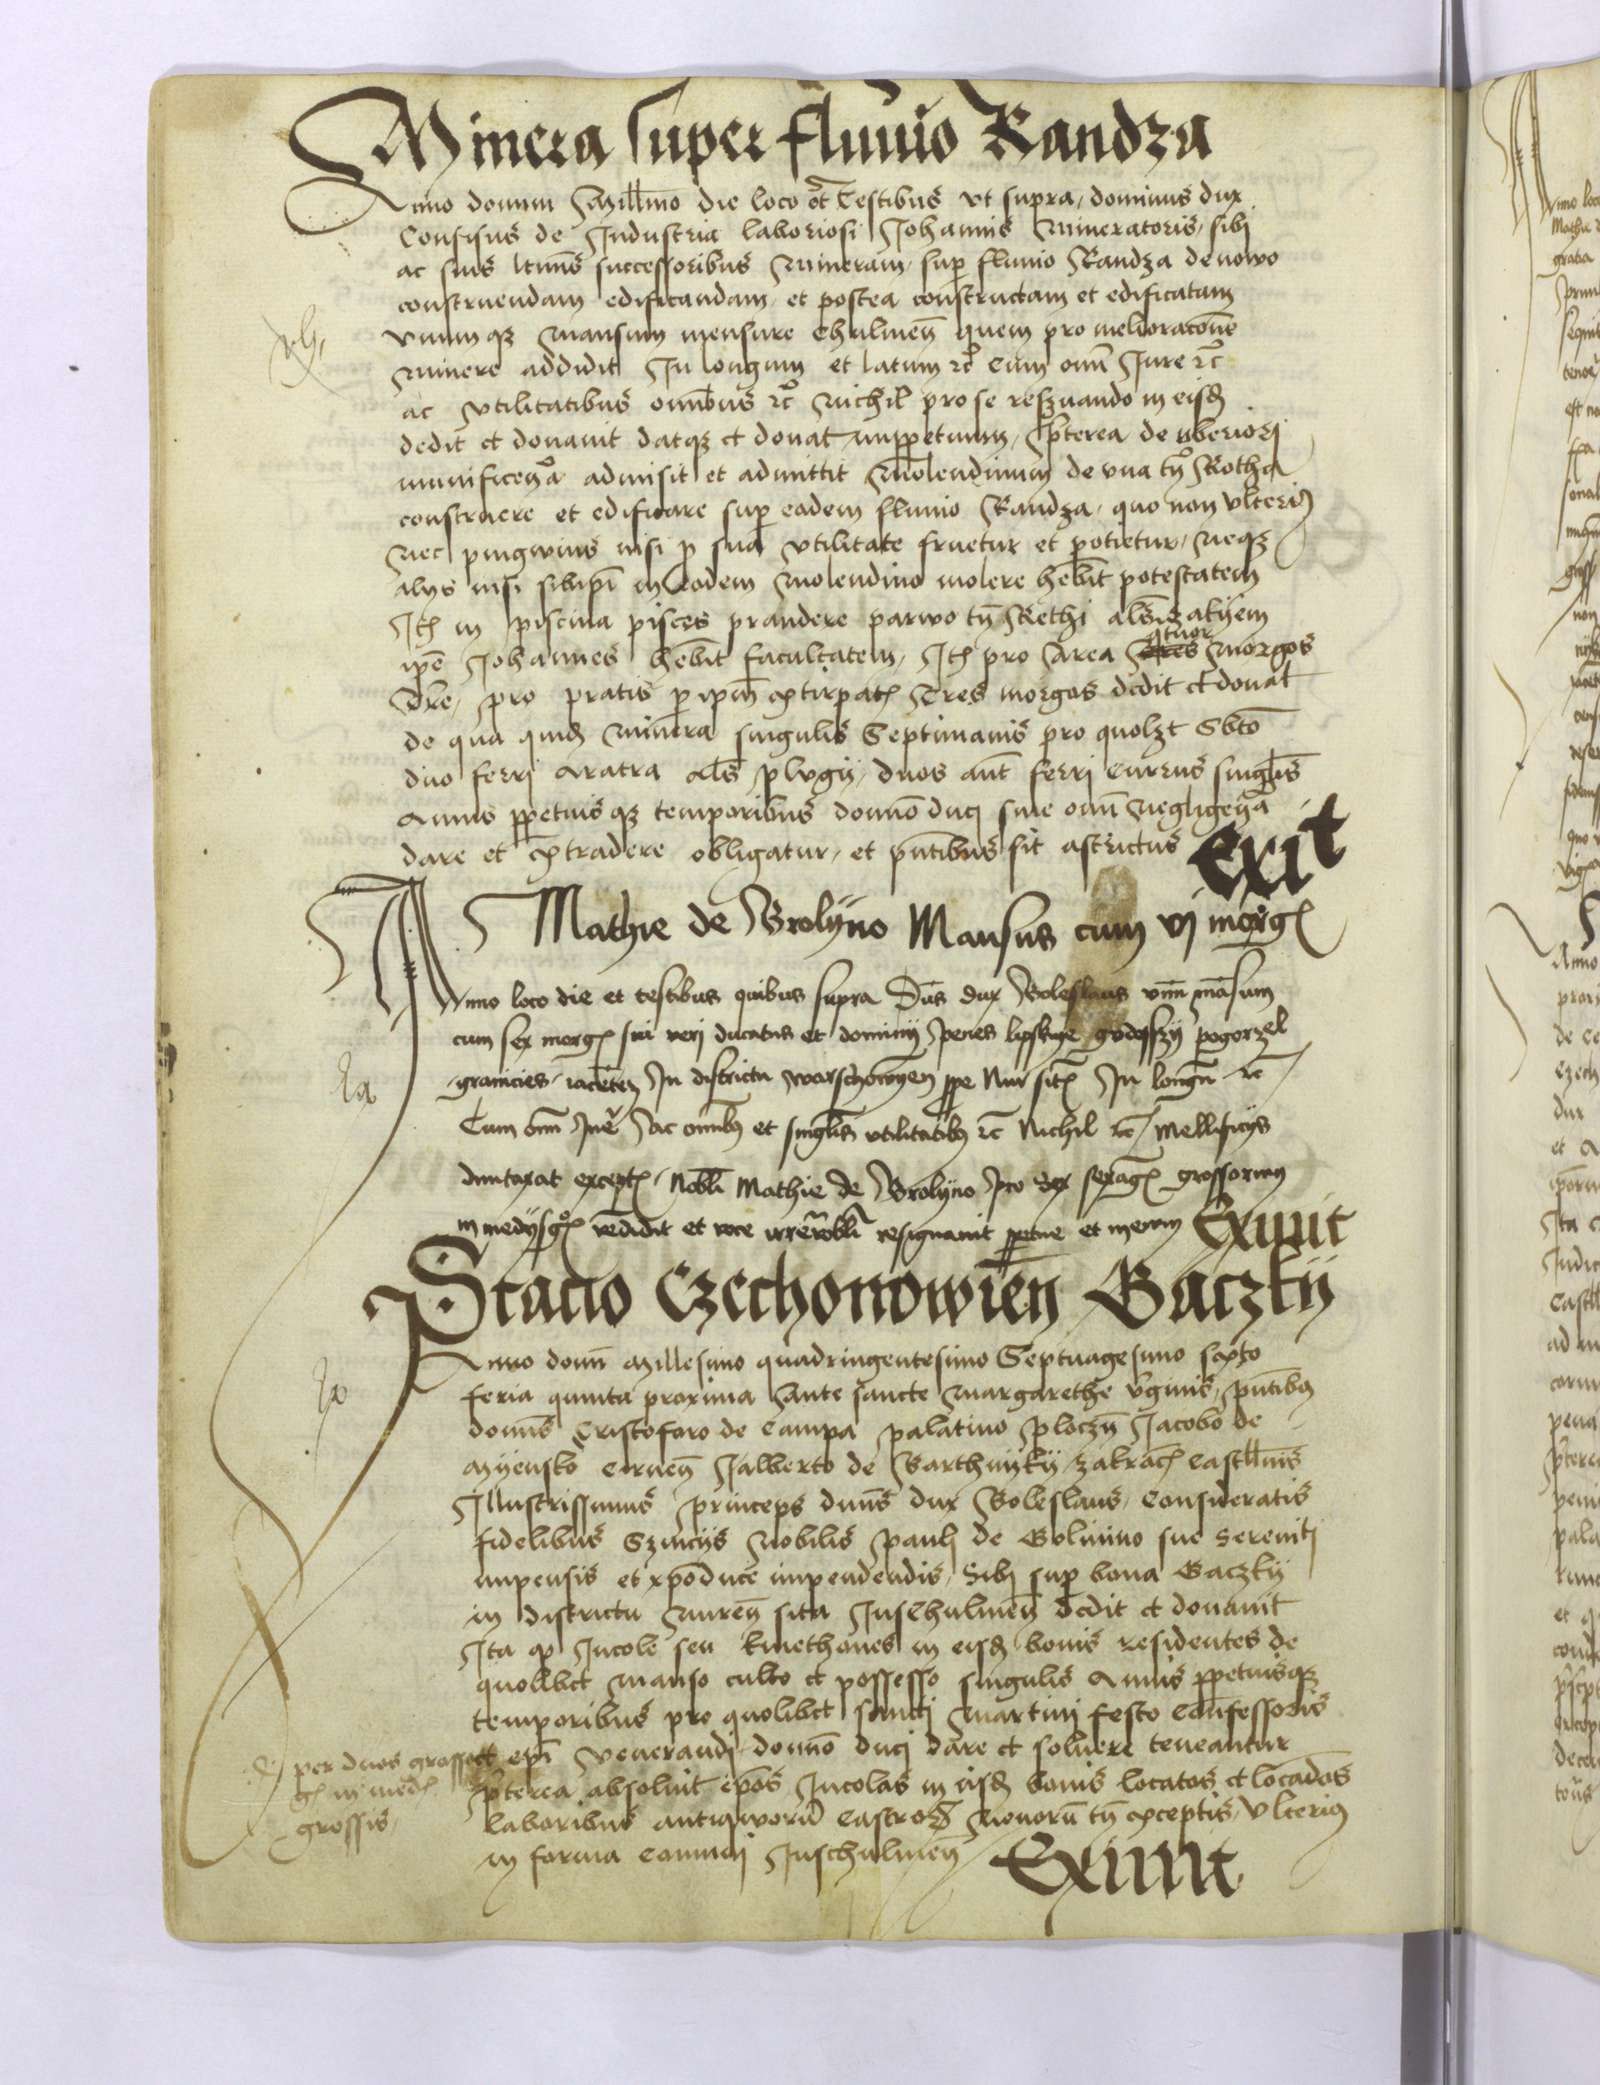 Minera super fluuio Randza
Anno domini Millmo die loco et Testibus vt supra, dominus dux
Confisus de Industria laboriosi Johannis Mineratoris, sibi
ac suis ltimis successoribus Mineram, sup fluuio Randza denowo
construendam edificandam, et postea constructam et edificatam
vnum qz Mansum mensure Chulmen quem pro melioracōne
Minere addidit In longum et latum rc Cum omni Jure rc
ac vtilitatibus omnibus rc Nichil pro se reseruando in eisd
dedit et donauit datqz et donat imppetuum, Pterea de vberiori
munificencia admisit et admittit Molendinum de vna tn Rotha
construere et edificare sup eadem fluuio Randza, quo non vlterius
Nec pingwius nisi p sua vtilitate fruetur et potietur, Neqz
alys nisi sibiipi in eodem Molendino molere hebit potestatem
Jt in piscina pisces prandere parwo tn Rethi als
ipe Johannes hebit facultatem, Jt pro Area Tres qtuor Morgos
pro pratis p ipm extirpat Tres morgos dedit et donat
de qua quid Minera singulis Septimanis pro quolzt Sbto
duo ferri aratra als plvgy, duos aut ferri currus singlis
Annis ppetuisqz temporibus domno duci sine omni Negligencia
dare et extradere obligatur, et pntibus sit astrictus Exit
Mathie de Brolyno Mansus cum vj morg
Anno loco die et testibus quibus supra Dns dux Boleslaus vnm mansum
cum sex morg sui veri ducatus et dominij penes lipskye godosszy pogorzel
granicies, iacentez In districtu warschowyen ppe Nur sit In longu rc
Cum omi Jure Ac omibus et singlis vtilitatibus rc Nichil rc Mellificijs
dumtaxat except, Nobli Mathie de Brolyno pro sex sexag grossorum
in medijs g vendidit et voce irreuobli resignauit ppetue et in euum Exiuit
Donacio Czechonowien Baczky
Anno domi Millesimo quadringentesimo Septuagesimo sexto
feria quinta proxima Ante sancte Margarethe vginis, pntibus
domis Cristoforo de Campa palatino ploczn Jacobo de
Myensko Ciruen Jalberto de Barthnyky zakracz Castllanis
Illustrissimus princeps dnns dux Boleslaus, Consideratis
fidelibus Szuicijs Nobilis pauli de Golimino sue Sereniti
impensis et xpo duce impendendis, Sibi sup bona Baczky
in districtu Nuren sita Juschulmen dedit et donauit
Ita qz Incole seu kmethones in eisd bonis residentes de
quolibet Manso culto et possesso singulis Annis ppetuisqz
temporibus pro quolibet sancti Martini festo Confessoris
et epi venerandi domno duci dare et soluere teneantur
per duos gross g in med grossis,
Pterea absoluit epos Incolas in eisd bonis locatos et locados
laboribus antiqworu Castroz Nouoru tn exceptis, vlterius
in forma Commi Juschulmen Exiuit